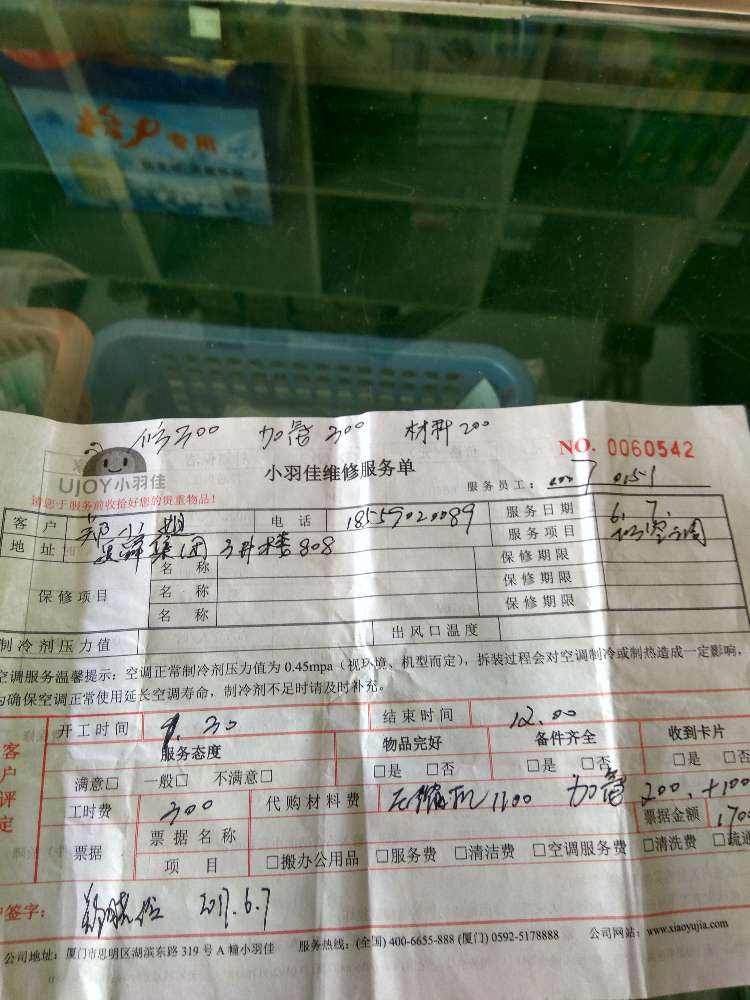 抢户专用
修300 加雪300 材料200
NO. 0060542
UJOY小羽佳
小羽佳维修服务单
服务员工:
请您于服务前收拾好您的贵重物品!
客户 郑小姐 电话 18559020089 服务日期 6.7.
地址 集团 808 服务项目 修空调
保修项目 名称 保修期限
名称 保修期限
名称 保修期限
制冷剂压力值 出风口温度
空调服务温馨提示:空调正常制冷剂压力值为 0.45mpa(视环境、机型而定),拆装过程会对空调制冷或制热造成一定影响,
为确保空调正常使用延长空调寿命,制冷剂不足时请及时补充。
客户评定
开工时间 9.30 结束时间 12.00
服务态度 物品完好 备件齐全 收到卡片
满意□ 一般□ 不满意□ □是 □否 □是 □否 □是 □否
工时费 300 代购材料费 压缩机1100 加雪 200.+100
票据 票据名称 票据金额 1700
项目 □搬办公用品 □服务费 □清洁费 □空调服务费 □清洗费 □疏通
户签字: 2017.6.7
公司地址:厦门市思明区湖滨东路 319 号 A 幢小羽佳 服务热线:(全国) 400-6655-888 (厦门) 0592-5178888 公司网站:www.xiaoyujia.com